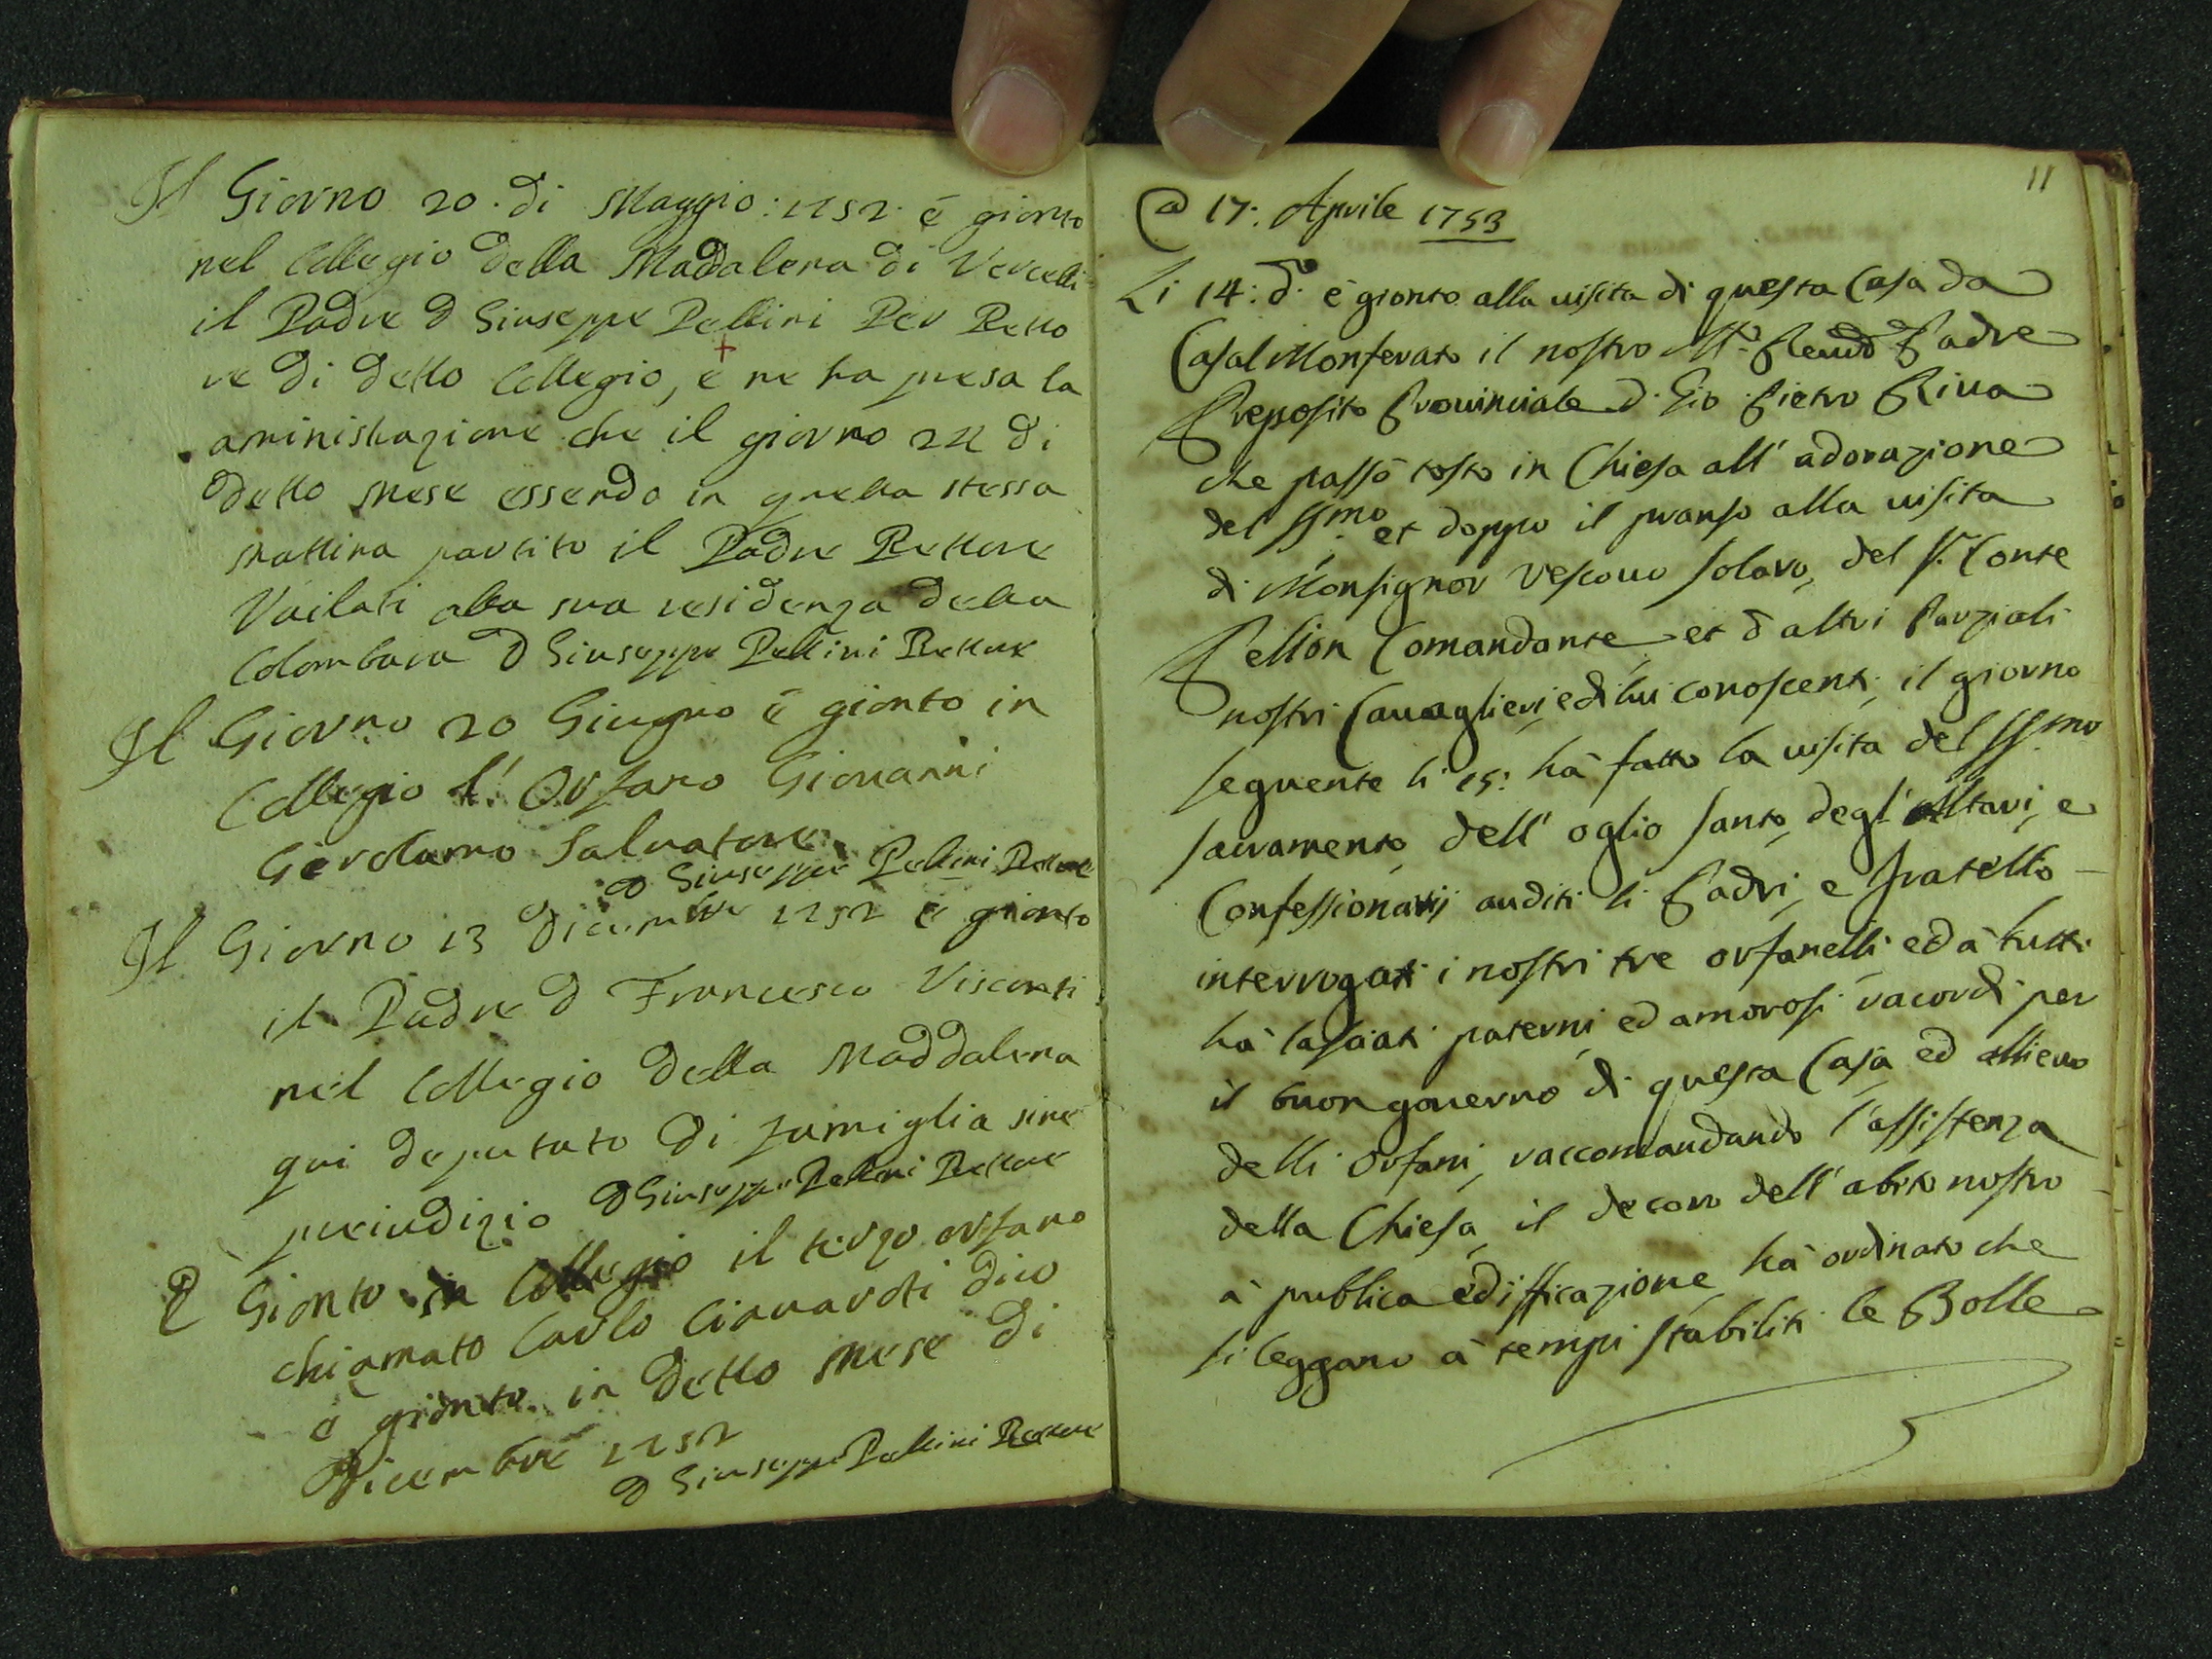 Il Giorno 20. di Maggio: 1752. è gionto
nel Collegio della Maddalena di Vercelli
il Padre D Giuseppe Pellini Per Retto
re di detto Collegio, e ne ha presa la
aministrazione che il giorno 22 di
detto mese essendo in quella stessa
mattina partito il Padre Rettore
Vailati alla sua residenza della
Colombara D Giuseppe Pellini Rettore
Il Giorno 20 Giugno è gionto in
Collegio l' Orfano Giovanni
Gerolamo Salvatore
D Giuseppe Pellini Rettore
Il Giorno 13 Dicembre 1752 è gionto
il Padre D Francesco Visconti
nel Collegio della Maddalena
qui deputato di famiglia sine
preiudizio D Giuseppe Pellini Rettore
E Gionto in Collegio il terzo orfano
chiamato Carlo dico
è gionto in detto mese di
Dicembre 1752
D Giuseppe Pellini Rettore
11
a 17: Aprile 1753
Li 14: do. è gionto alla uisita di questa Casa da
Casal Monferato il nostro M. Reudo Padre
Preposito Prouinciale D. Gio Pietro Riua
che passò tosto in Chiesa all' adorazione
del SSmo. et doppo il pranso alla uisita
di Monsignor Vescouo Solaro, del S. Conte
Pellion Comandante et d altri Parziali
nostri Cauaglieri, e di lui conoscenti, il giorno
seguente li 15: hà fatto la uisita del SSmo
sacramento, dell' oglio santo, degl' Altari, e
Confessionarij auditi li Padri, e fratello
interrogati i nostri tre orfanelli ed à tutti
hà lasciati paterni, ed amorosi racordi per
il buon gouerno di questa Casa, ed allieuo
delli Orfani, raccomandando l'assistenza
della Chiesa, il decoro dell' abito nostro
à publica edifficazione, hà ordinato che
si leggano à tempi stabiliti le Bolle